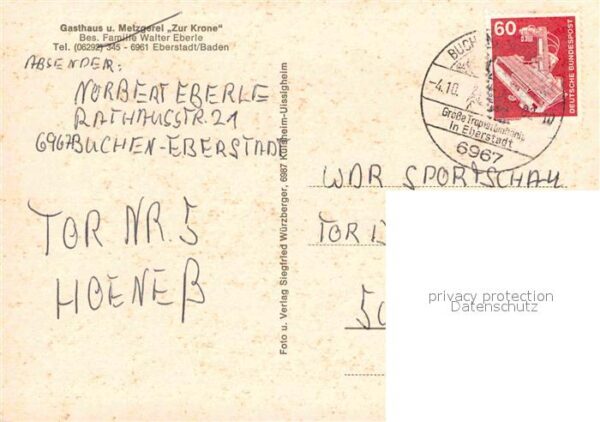 Gasthaus u. Metzgerei „Zur Krone"
Bes. Familie Walter Eberle
Tel. (06292) 345 - 6961 Eberstadt/Baden
ABSENDER:
NORBERT EBERLE
RATHAUSSTR. 21
6967 BUCHEN-EBERSTADT
TOR NR. 5
HOENEß
Foto u. Verlag Siegfried Würzberger, 6987 Külsheim-Uissigheim
60
DEUTSCHE BUNDESPOST
BUCH
-4.10.
Große Tropfsteinhöhle
in Eberstadt
6967
WDR SPORTSCHAU
TOR
50
privacy protection
Datenschutz